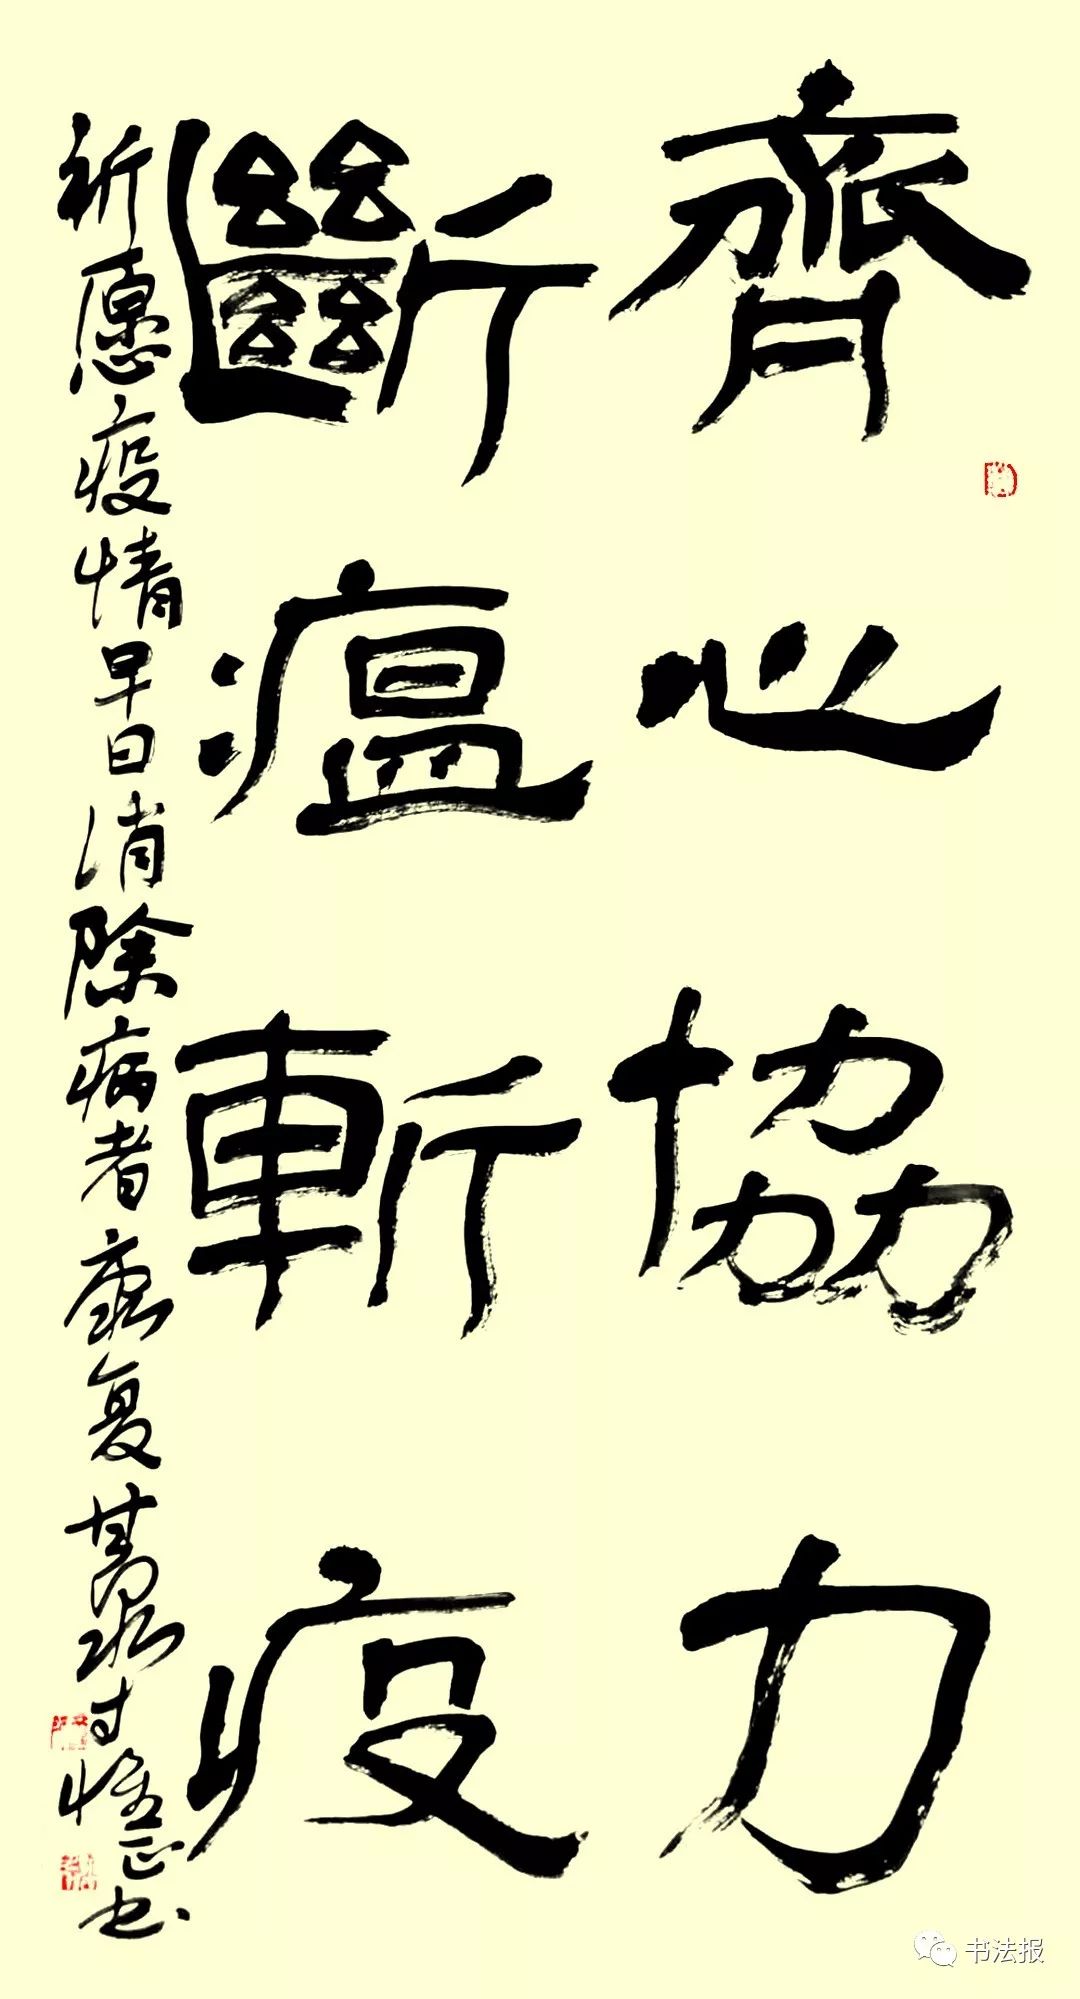 齊心協力
斷瘟斬疫
祈愿疫情早日消除病者康复
书法报